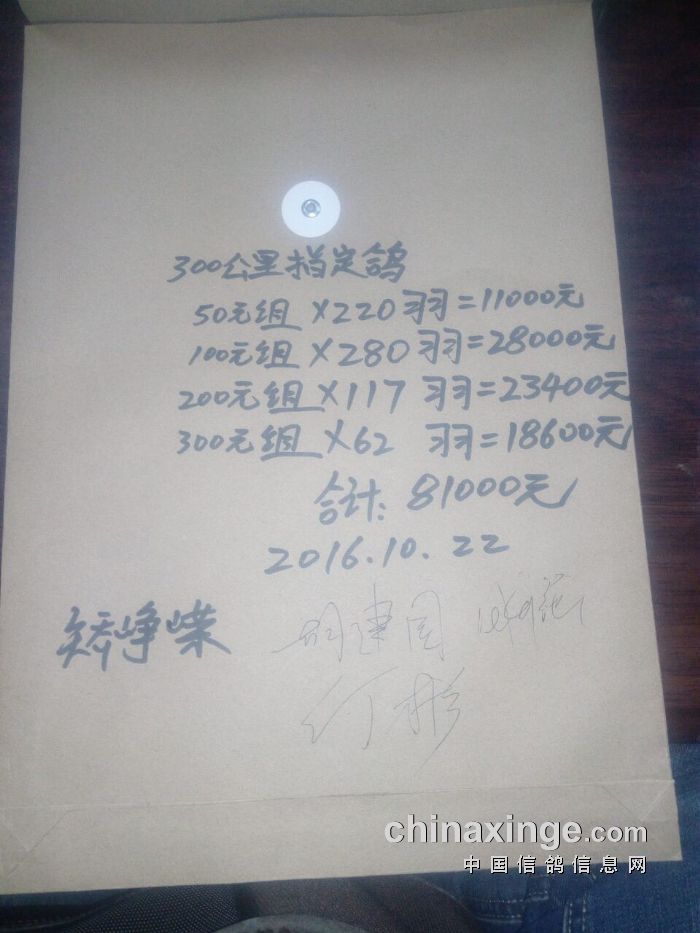 300公里指定鸽
50元组×220羽=11000元
100元组×280羽=28000元
200元组×117羽=23400元
300元组×62羽=18600元
合计:81000元
2016.10.22
矫峥嵘 胡建国
chinaxinge.com
中国信鸽信息网